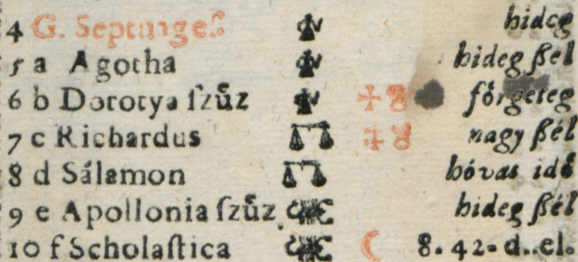 4 G. Septuageſ. hideg
5 a Agotha hideg ßél
6 b Dorotya ſzűz förgeteg
7 c Richardus nagy ßél
8 d Sálamon hóvas idő
9 e Apollonia ſzűz hideg ßél
10 f Scholaſtica 8. 42. d. el.